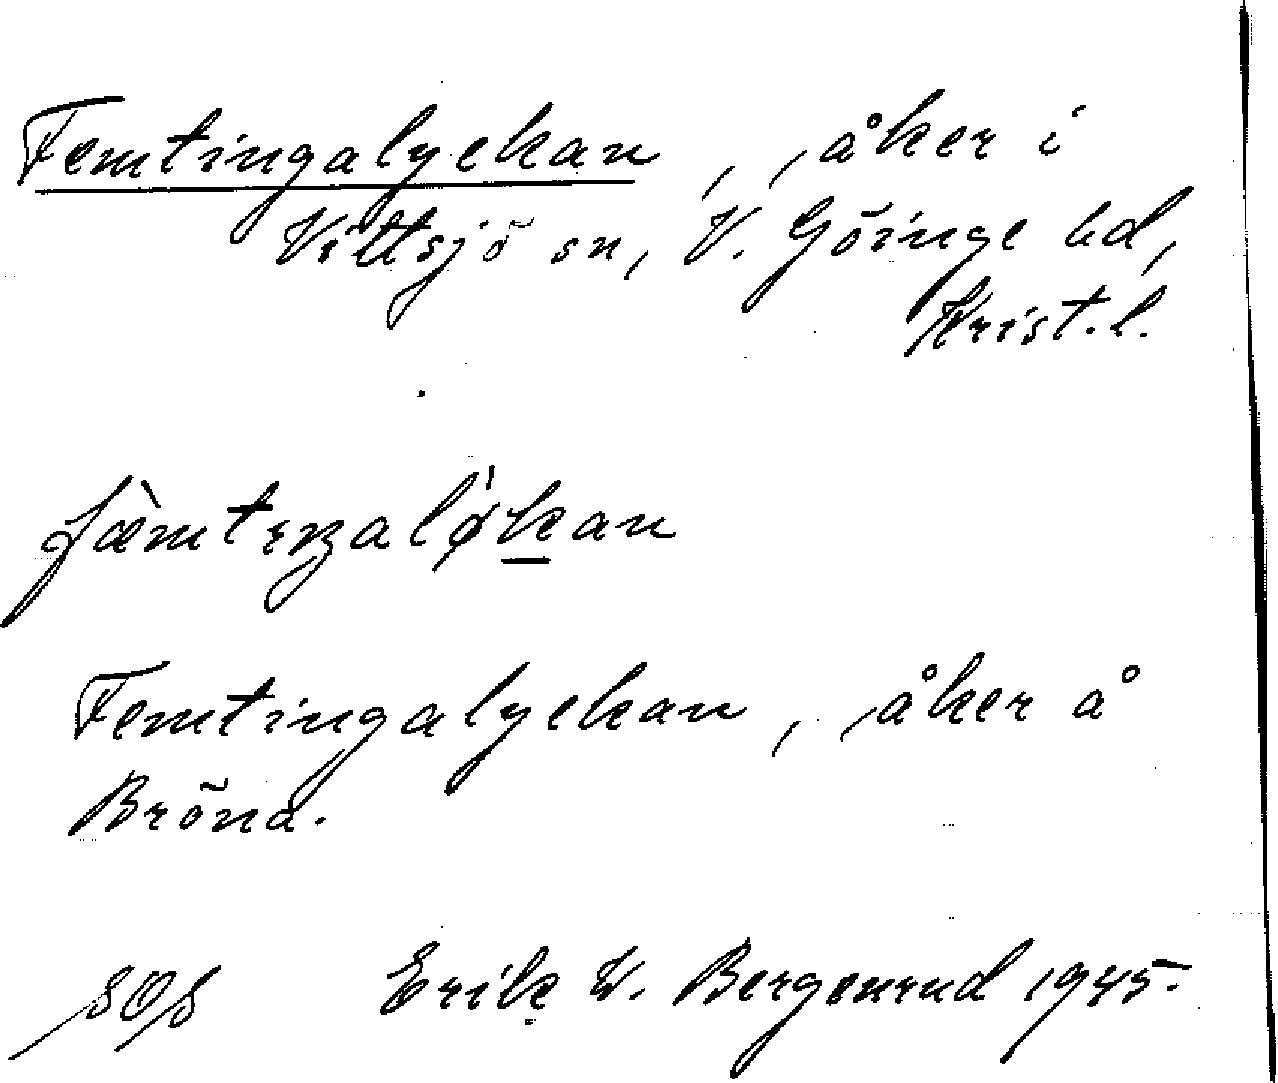 Femtingalyckan, åker i
Vittsjö sn, V. Göinge hd,
Krist. l.
fæ̀mtıŋaløkan
Femtingalyckan, åker å
Bröna.
Erik W. Bergenrud 1945.